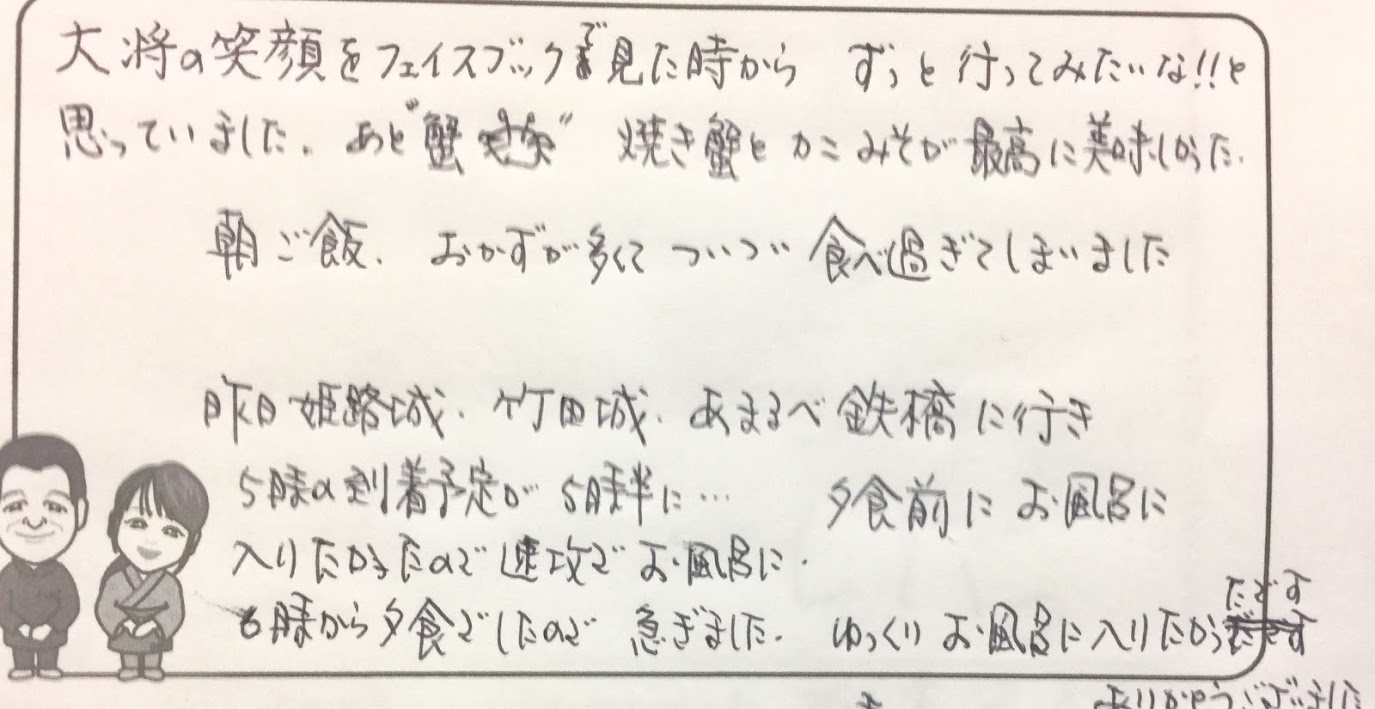 大将の笑顔をフェイスブックで見た時から ずっと行ってみたいな!!と
思っていました。あと"蟹 " 焼き蟹とカニみそが最高に美味しかった。
朝ご飯、おかずが多くてついつい食べ過ぎてしまいました
昨日姫路城、竹田城、あまるべ鉄橋に行き
5時の到着予定が5時半に… 夕食前にお風呂に
入りたかったので速攻でお風呂に。
6時から夕食でしたので 急ぎました。ゆっくりお風呂に入りたかったです
ありがとうございました